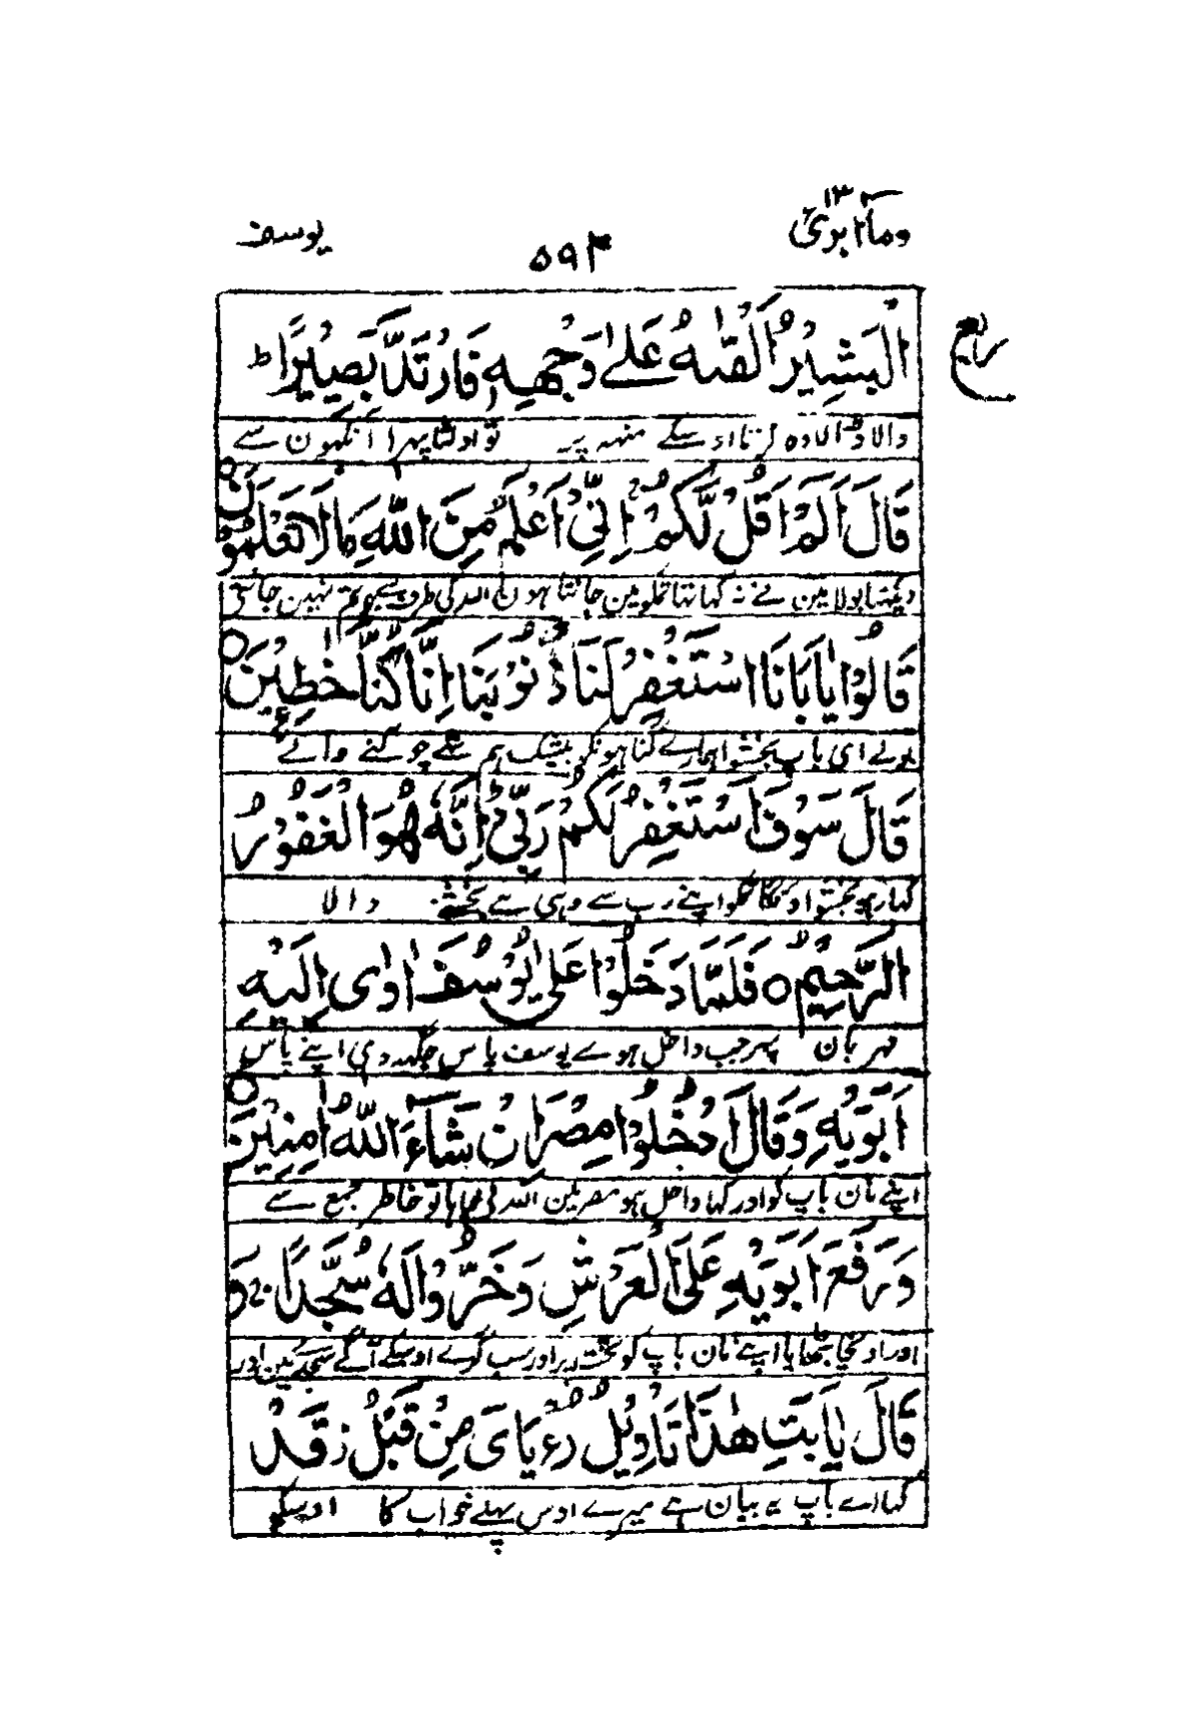 وما ابرئ ١٣
٥٩٣
يوسف
ربع
الْبَشِيْرُ اَلْقٰىهُ عَلٰى وَجْهِهٖ فَارْتَدَّ بَصِيْرًا ط
والا ڈالا وہ کرتا اوسکے منہہ پر تو اولٹا پہرا آنکہون سے
قَالَ اَلَمْ اَقُلْ لَّكُمْ اِنِّيْ اَعْلَمُ مِنَ اللّٰهِ مَا لَا تَعْلَمُوْنَ
دیکہتا بولا مین نے نہ کہا تہا تمکو مین جانتا ہون اللہ کی طرف سے جو تم نہین جانتے
قَالُوْا يٰاَبَانَا اسْتَغْفِرْ لَنَا ذُنُوْبَنَا اِنَّا كُنَّا خٰطِئِيْنَ
بولے ای باپ بخشوا ہمارے گناہونکو بیشک ہم تہے چوکنے والے
قَالَ سَوْفَ اَسْتَغْفِرُ لَكُمْ رَبِّيْ اِنَّهٗ هُوَ الْغَفُوْرُ
کہا رہو بخشواونگا تمکو اپنے رب سے وہی ہے بخشنے والا
الرَّحِيْمُ ○ فَلَمَّا دَخَلُوْا عَلٰى يُوْسُفَ اٰوٰى اِلَيْهِ
مہربان پہر جب داخل ہوے یوسف پاس جگہہ دی اپنے پاس
اَبَوَيْهِ وَقَالَ ادْخُلُوْا مِصْرَ اِنْ شَآءَ اللّٰهُ اٰمِنِيْنَ
اپنے مان باپ کو اور کہا داخل ہو مصر مین اللہ نے چاہا تو خاطر جمع سے
وَرَفَعَ اَبَوَيْهِ عَلَى الْعَرْشِ وَخَرُّوْا لَهٗ سُجَّدًا ج وَ
اور اونچا بٹھایا اپنے مان باپ کو تخت پر اور سب گرے اوسکے آگے سجدے مین اور
قَالَ يٰاَبَتِ هٰذَا تَاْوِيْلُ رُءْيَايَ مِنْ قَبْلُ ز قَدْ
کہا اے باپ یہ بیان ہے میرے اوس پہلے خواب کا اوسکو